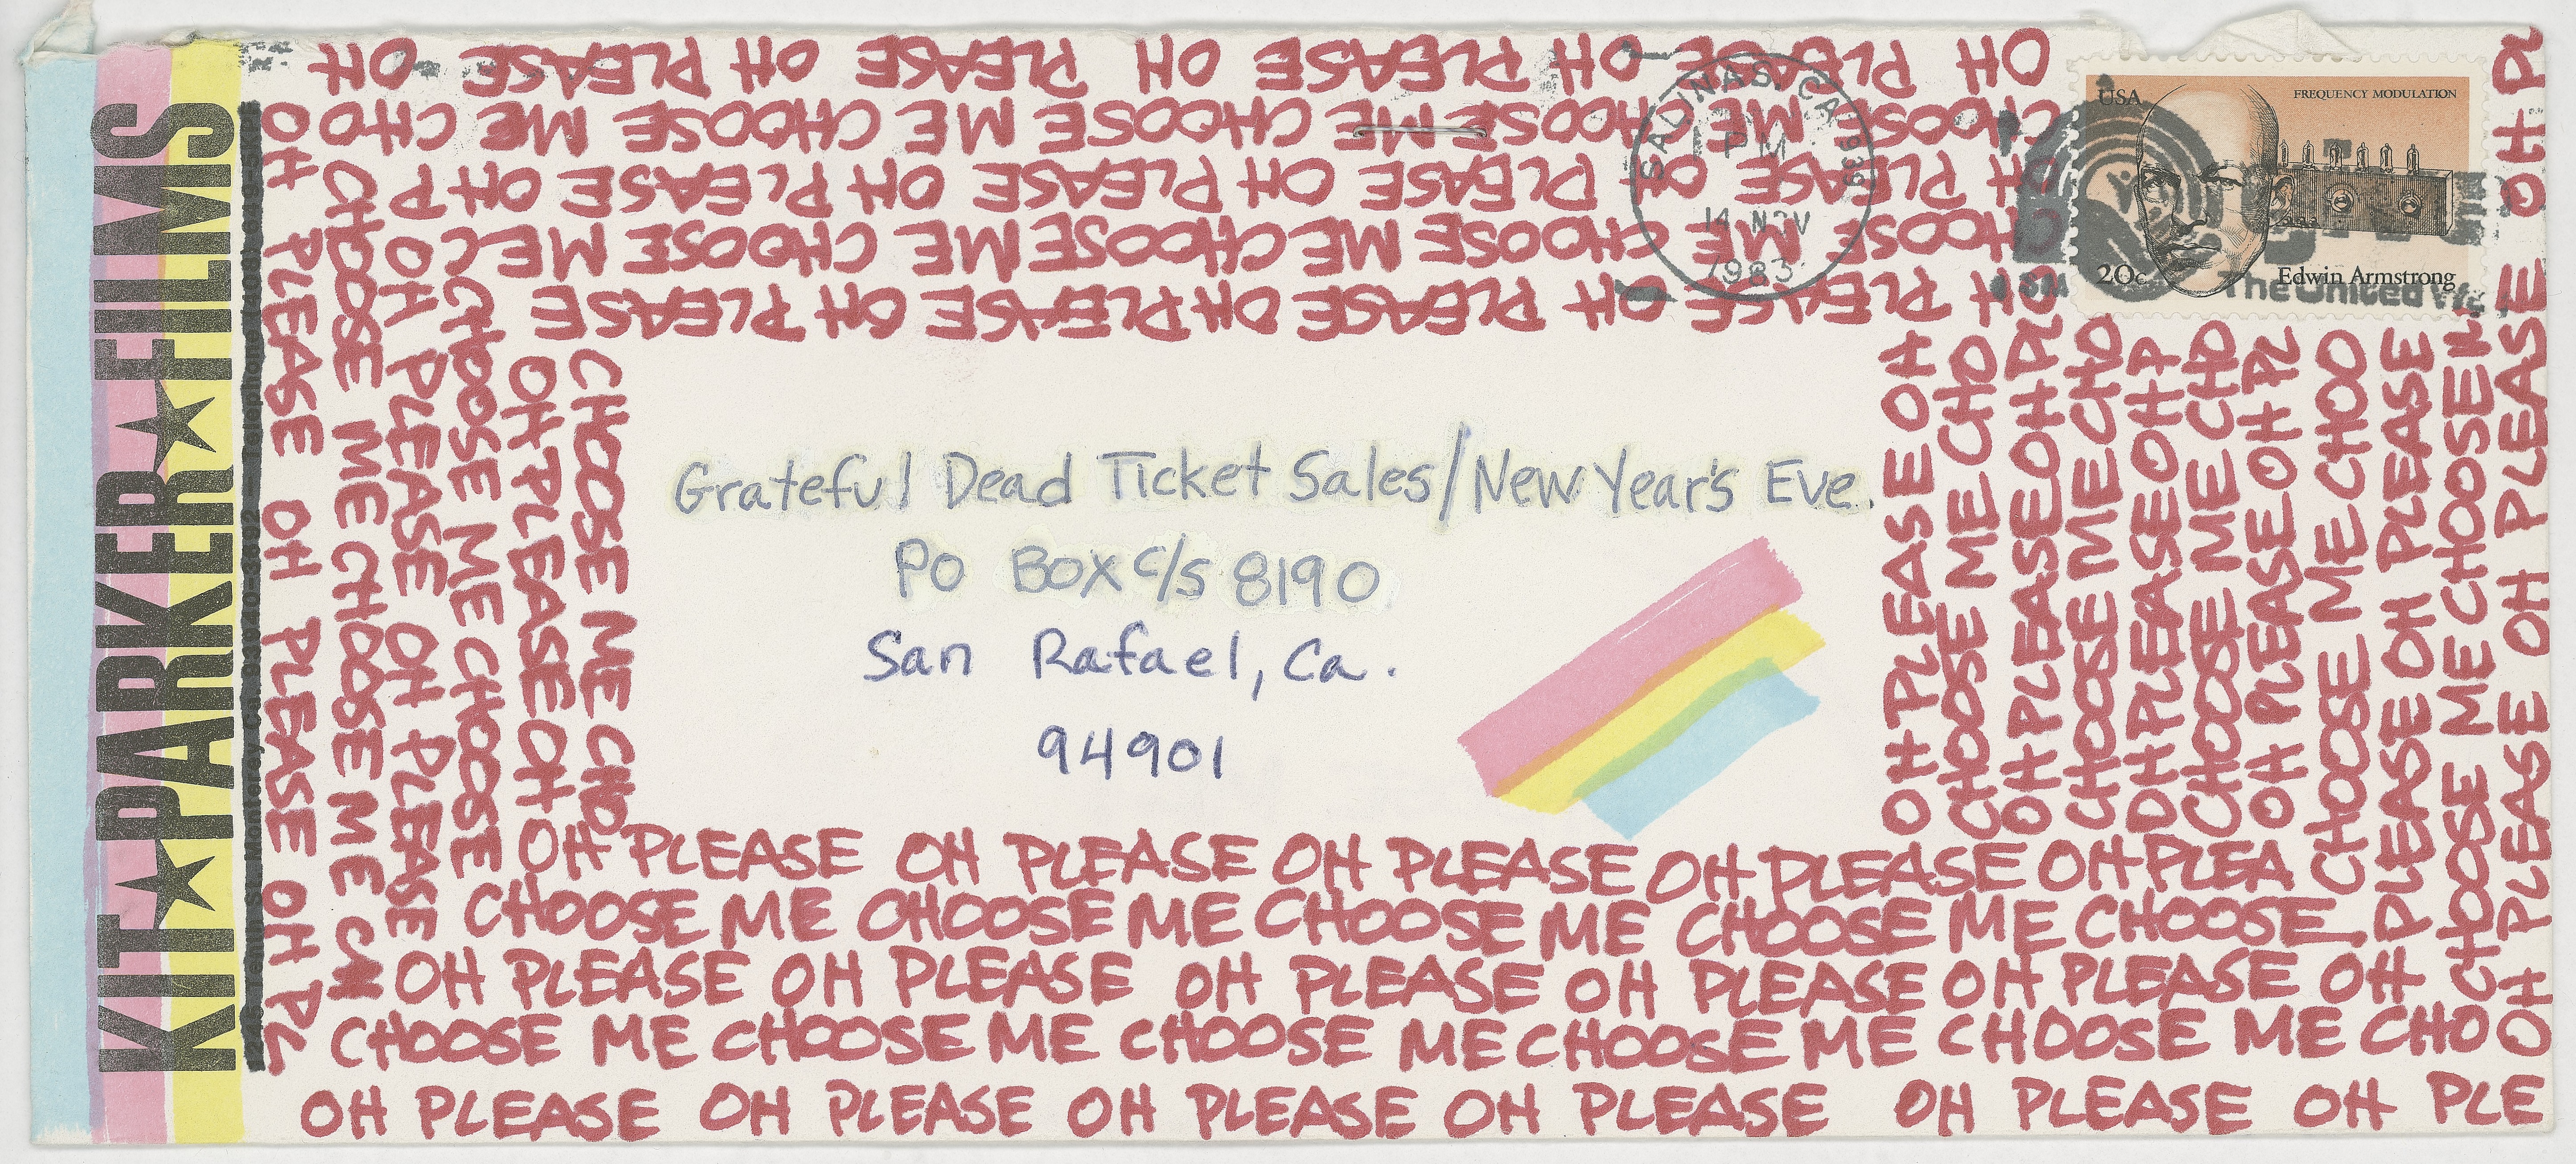 KIT★PARKER★FILMS
KIT★PARKER★FILMS
OH PLEASE OH PLEASE OH PLEASE OH PLEASE OH
CHOOSE ME CHOOSE ME CHOOSE ME CHOOSE ME CHOOSE ME CHO
OH PLEASE OH PLEASE OH PLEASE OH PLEASE OH P
CHOOSE ME CHOOSE ME CHOOSE ME CHOOSE ME C
PLEASE OH PLEASE OH PLEASE OH PLEASE
SALINAS, CA 939
PM
14 NOV
1983
USA
FREQUENCY MODULATION
20c
Edwin Armstrong
The United Way
OH PLEASE OH PLEASE OH PL
CHOOSE ME CHOOSE ME
OH PLEASE OH PLEASE
CHOOSE ME CHOOSE
OH PLEASE OH
CHOOSE ME CHO
Grateful Dead Ticket Sales/New Year's Eve.
PO Box c/s 8190
San Rafael, Ca.
94901
OH PLEASE OH
CHOOSE ME CHO
OH PLEASE OH PL
CHOOSE ME CHO
OH PLEASE OH P
CHOOSE ME CHO
OH PLEASE OH PL
CHOOSE ME CHOO
PLEASE OH PLEASE
CHOOSE ME CHOOSE M
OH PLEASE OH PLEASE OH PLEASE OH PL
OH PLEASE OH PLEASE OH PLEASE OH PLEASE OH PLEA
CHOOSE ME CHOOSE ME CHOOSE ME CHOOSE ME CHOOSE
OH PLEASE OH PLEASE OH PLEASE OH PLEASE OH PLEASE OH
CHOOSE ME CHOOSE ME CHOOSE ME CHOOSE ME CHOOSE ME CHO
OH PLEASE OH PLEASE OH PLEASE OH PLEASE OH PLEASE OH PLE